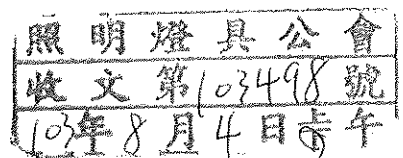 照明燈具公會
收文第103498號
103年8月4日午